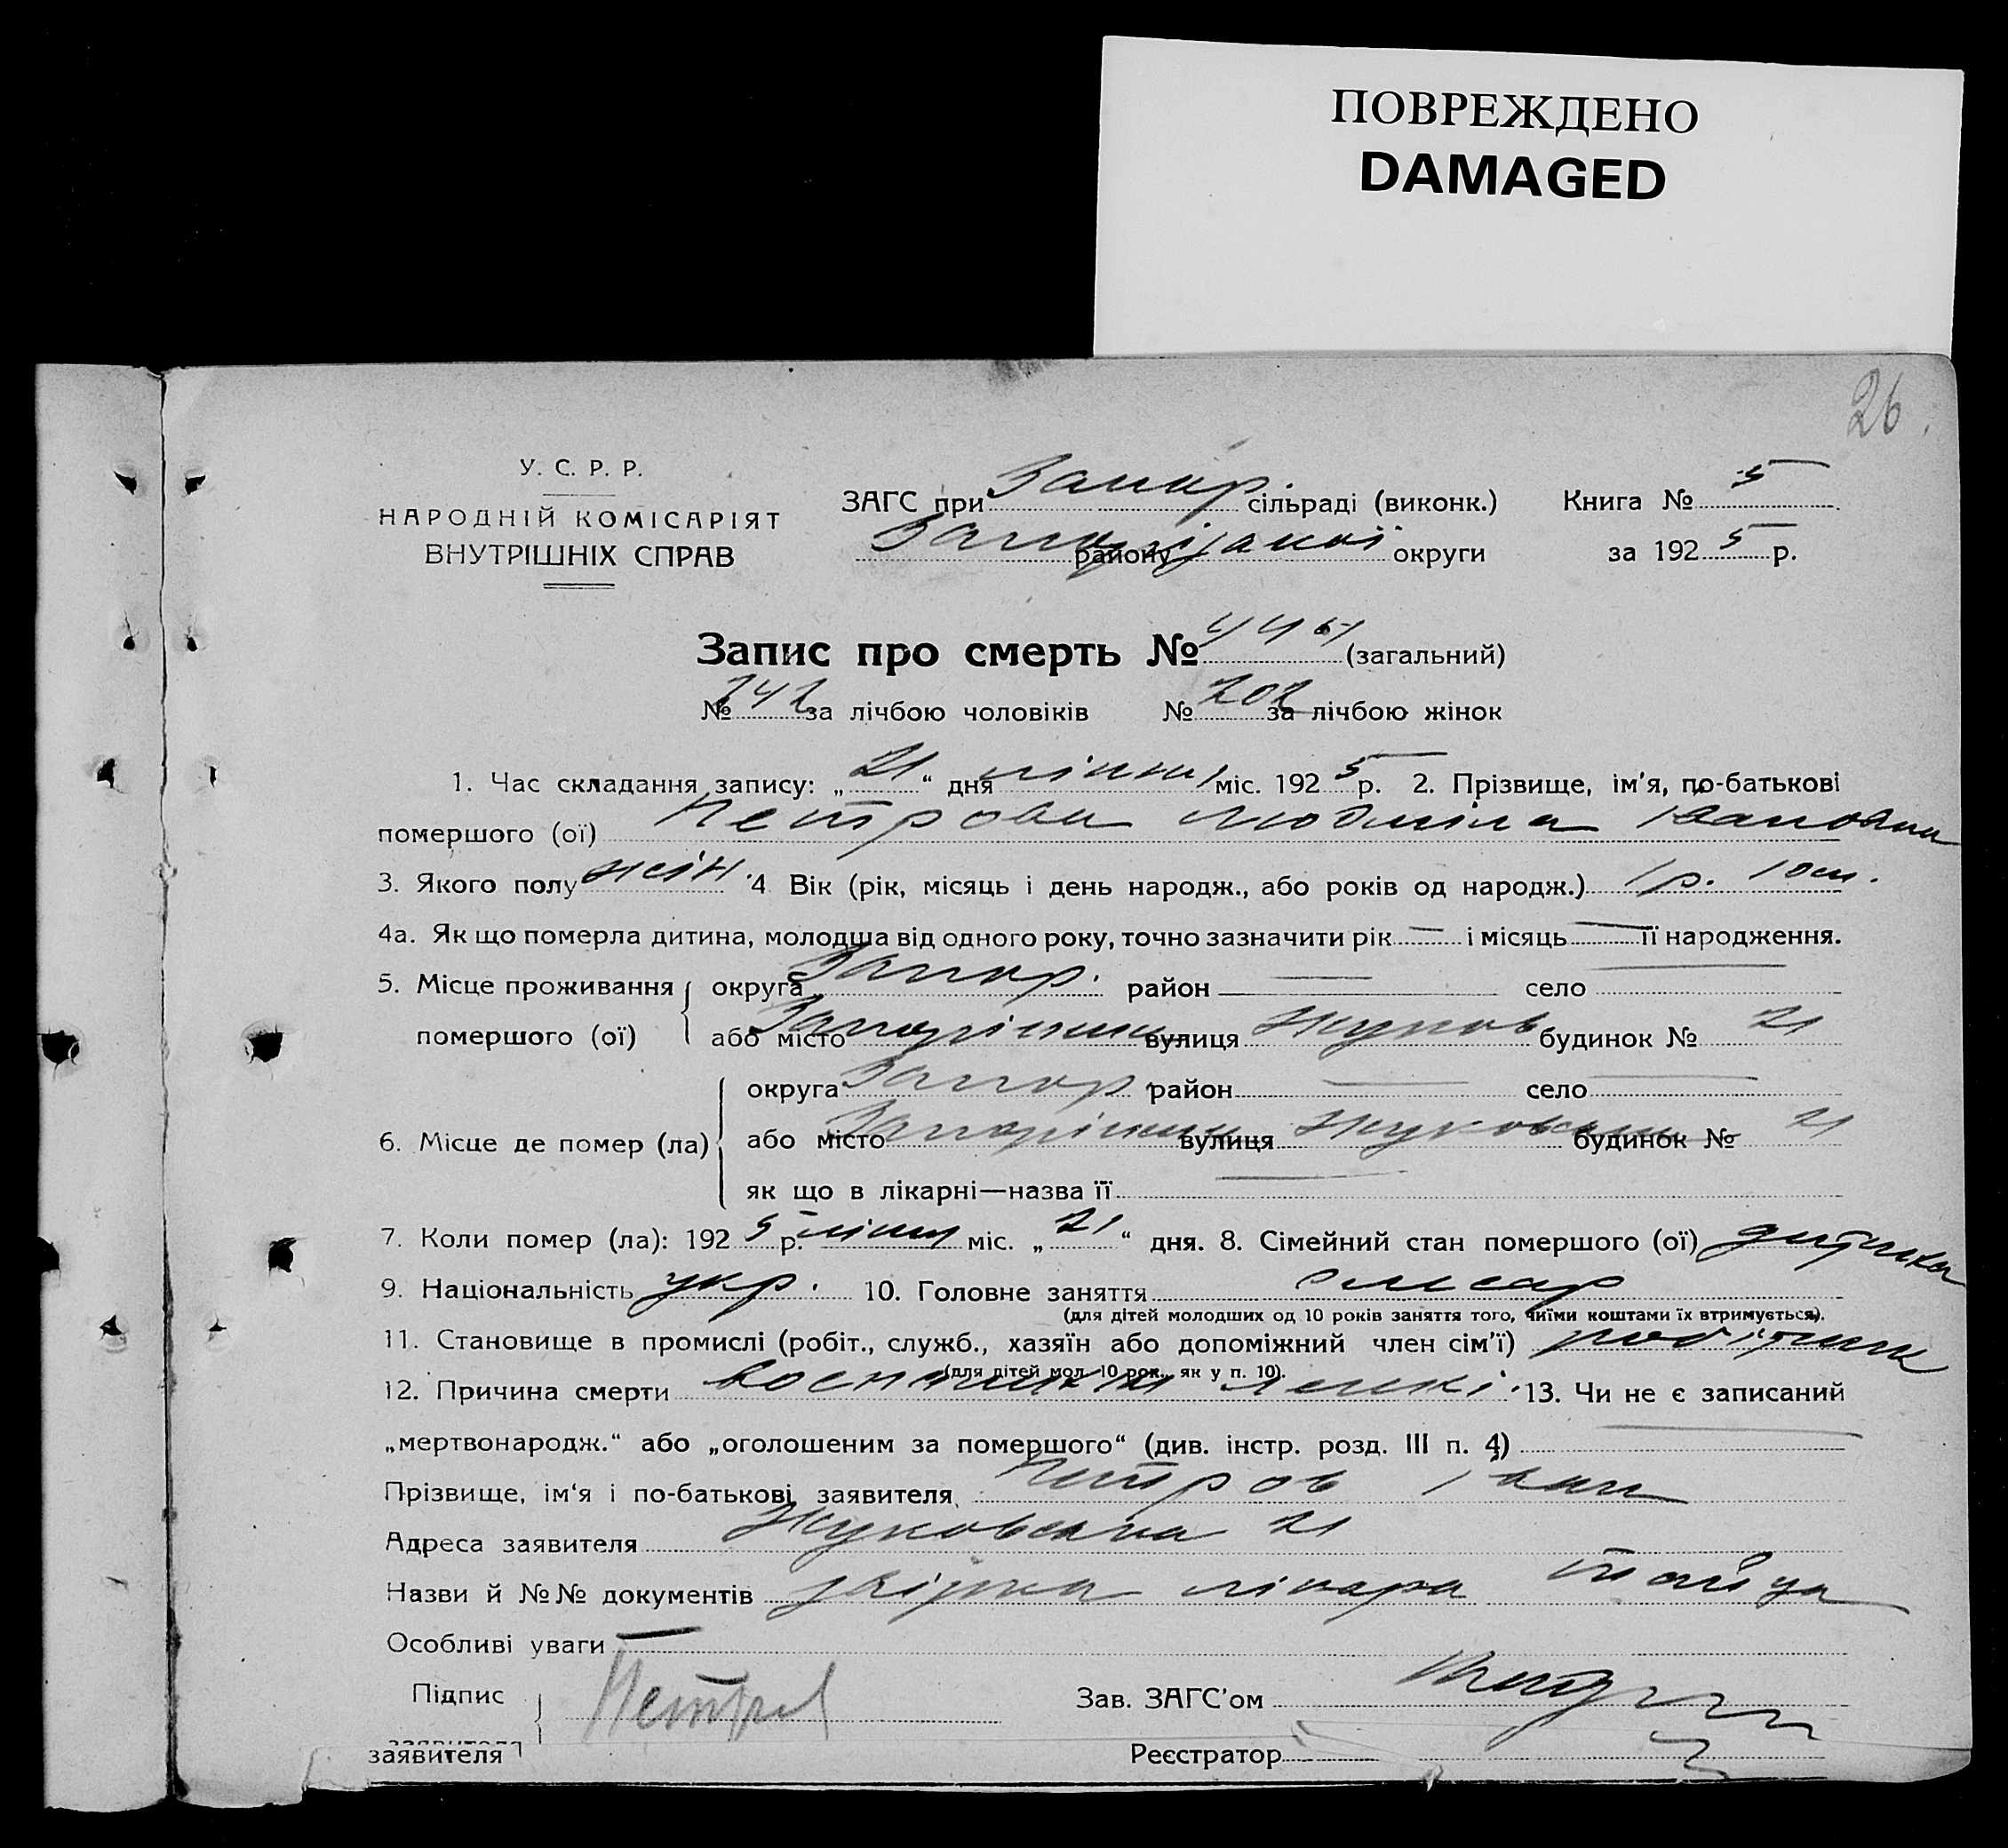 ПОВРЕЖДЕНО
DAMAGED
26.
У. С. Р. Р.
НАРОДНІЙ КОМІСАРІЯТ
ВНУТРІШНІХ СПРАВ
ЗАГС при Запор. сільраді (виконк.) Книга № 5
району Запорізької округи за 1925 р.
Запис про смерть № (загальний)
№ 242 за лічбою чоловіків № 202 за лічбою жінок
1. Час складання запису: „21“ дня липня міс. 1925 р. 2. Прізвище, ім'я, по-батькові
помершого (ої) Петрова Людміла Івановна
3. Якого полу жін. 4 Вік (рік, місяць і день народж., або років од народж.) 1 р. 10 м.
4а. Як що померла дитина, молодша від одного року, точно зазначити рік — і місяць — її народження.
5. Місце проживання округа Запор. район — село —
помершого (ої) або місто Запоріжжя вулиця Жуков будинок № 21
округа Запор. район — село —
6. Місце де помер (ла) або місто Запоріжжя вулиця Жуковська будинок № 21
як що в лікарні—назва її —
7. Коли помер (ла): 1925 р. липня міс. „21“ дня. 8. Сімейний стан помершого (ої) дитина
9. Національність укр. 10. Головне заняття слюсар
(для дітей молодших од 10 років заняття того, чиїми коштами їх втримується).
11. Становище в промислі (робіт., служб., хазяїн або допоміжний член сім'ї) робітник
(для дітей мол. 10 рок., як у п. 10).
12. Причина смерти легкі. 13. Чи не є записаний
„мертвонародж.“ або „оголошеним за помершого“ (див. інстр. розд. III п. 4) —
Прізвище, ім'я і по-батькові заявителя Петров Іван
Адреса заявителя Жуковська 21
Назви й №№ документів довідка лікара
Особливі уваги —
Підпис Петров Зав. ЗАГС'ом
заявителя Реєстратор